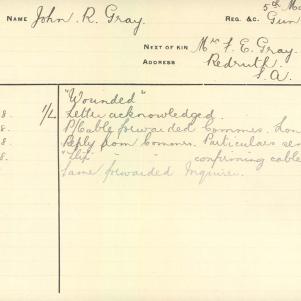 5th M
NAME John R. Gray. REG. &C. Gun
NEXT OF KIN Mrs F. E. Gray.
ADDRESS Redruth
S.A.
"Wounded"
8. Letter acknowledged.
8. P/Cable forwarded Commrs. Lon
8. Reply from Commrs. Particulars sen
8. confirming cable
Same forwarded Inquirer.